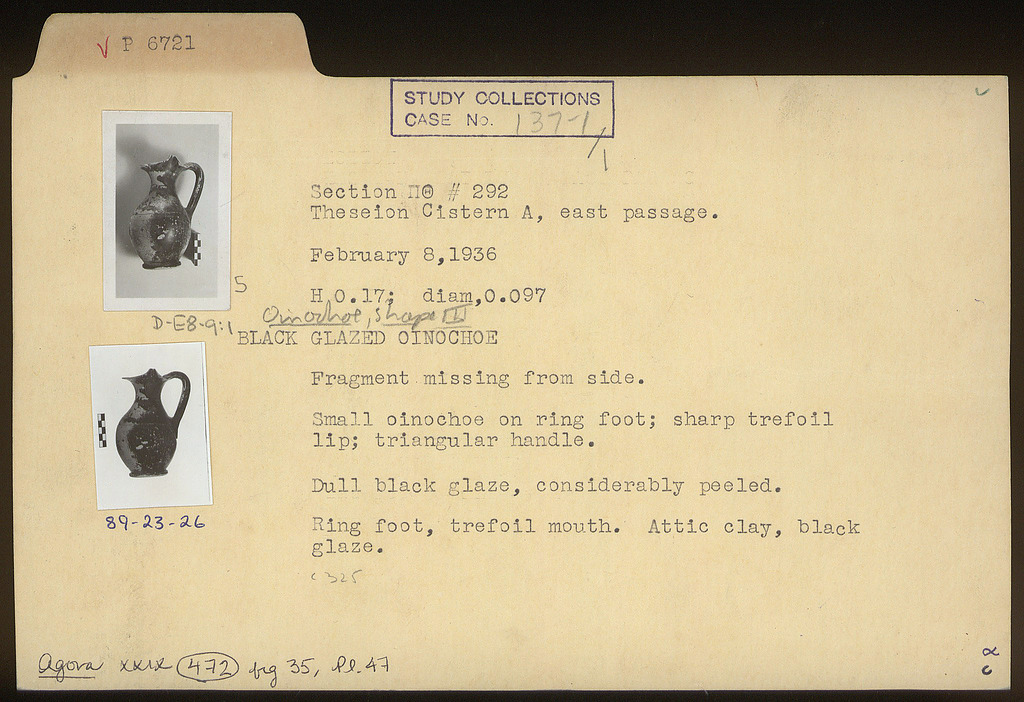 √ P 6721
STUDY COLLECTIONS
CASE No. 137-1/1
Section ΠΘ # 292
Theseion Cistern A, east passage.
February 8,1936
H,0.17; diam,0.097
5
Oinochoe, shape III
D-E8-9:1
BLACK GLAZED OINOCHOE
Fragment missing from side.
Small oinochoe on ring foot; sharp trefoil
lip; triangular handle.
Dull black glaze, considerably peeled.
89-23-26
Ring foot, trefoil mouth. Attic clay, black
glaze.
c 325
Agora xxix 472 fig 35, Pl. 47
α
c